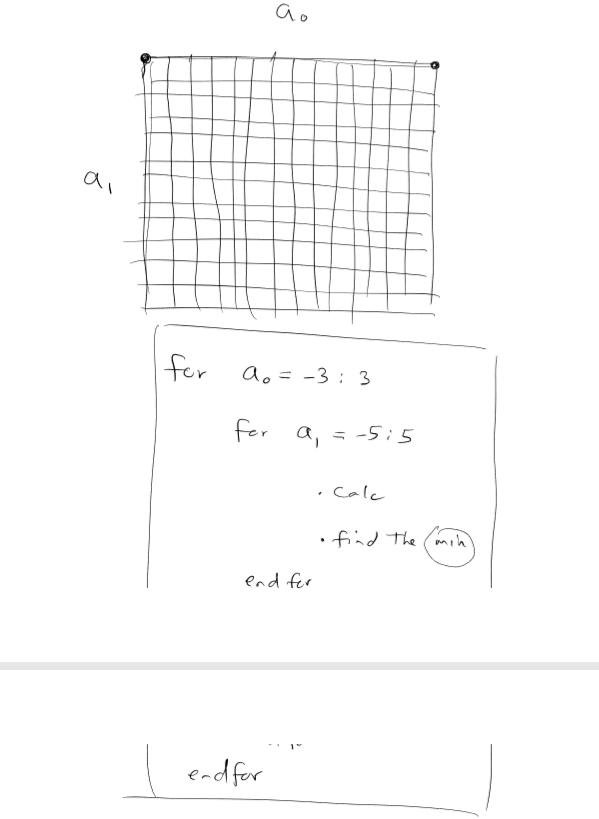 a₀
a₁
for a₀ = -3 : 3
for a₁ = -5 : 5
• calc
• find the min
end for
end for